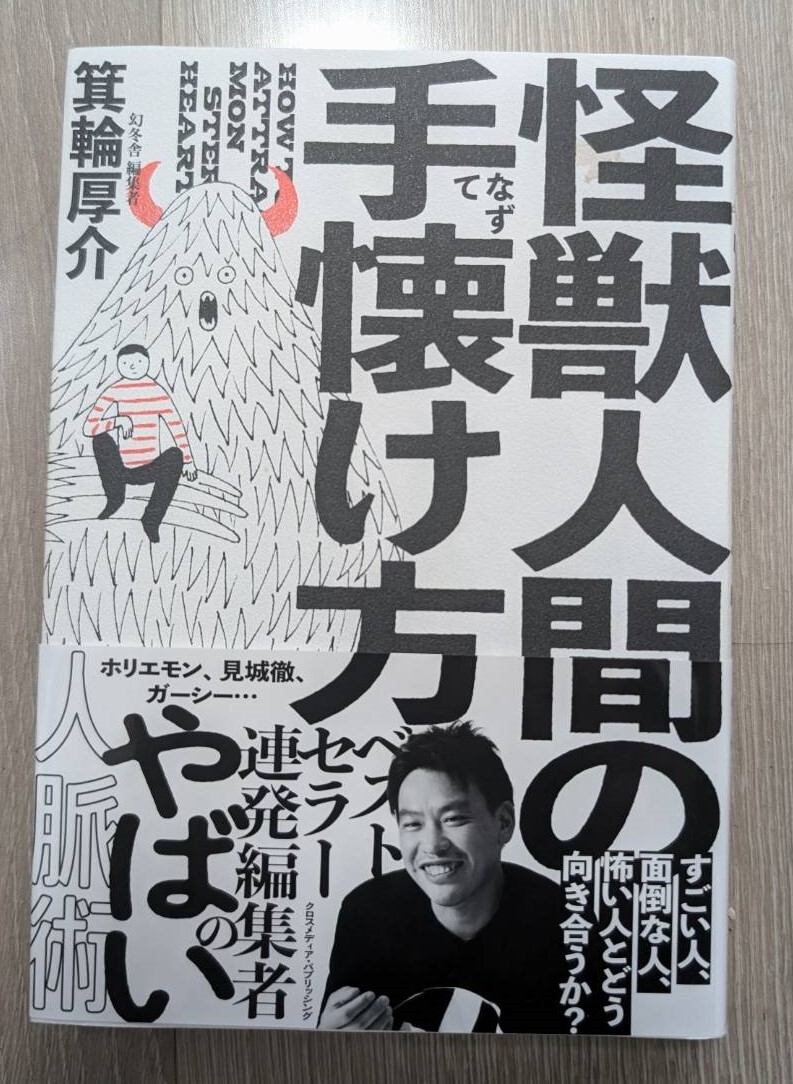 怪獣人間の
手懐け方
なず
て
HOW T
ATTRA
MON
STER
HEART
幻冬舎 編集者
箕輪厚介
すごい人、
面倒な人、
怖い人とどう
向き合うか?
ホリエモン、見城徹、
ガーシー…
ベスト
セラー
連発編集者
の
やばい
人脈術
クロスメディア・パブリッシング